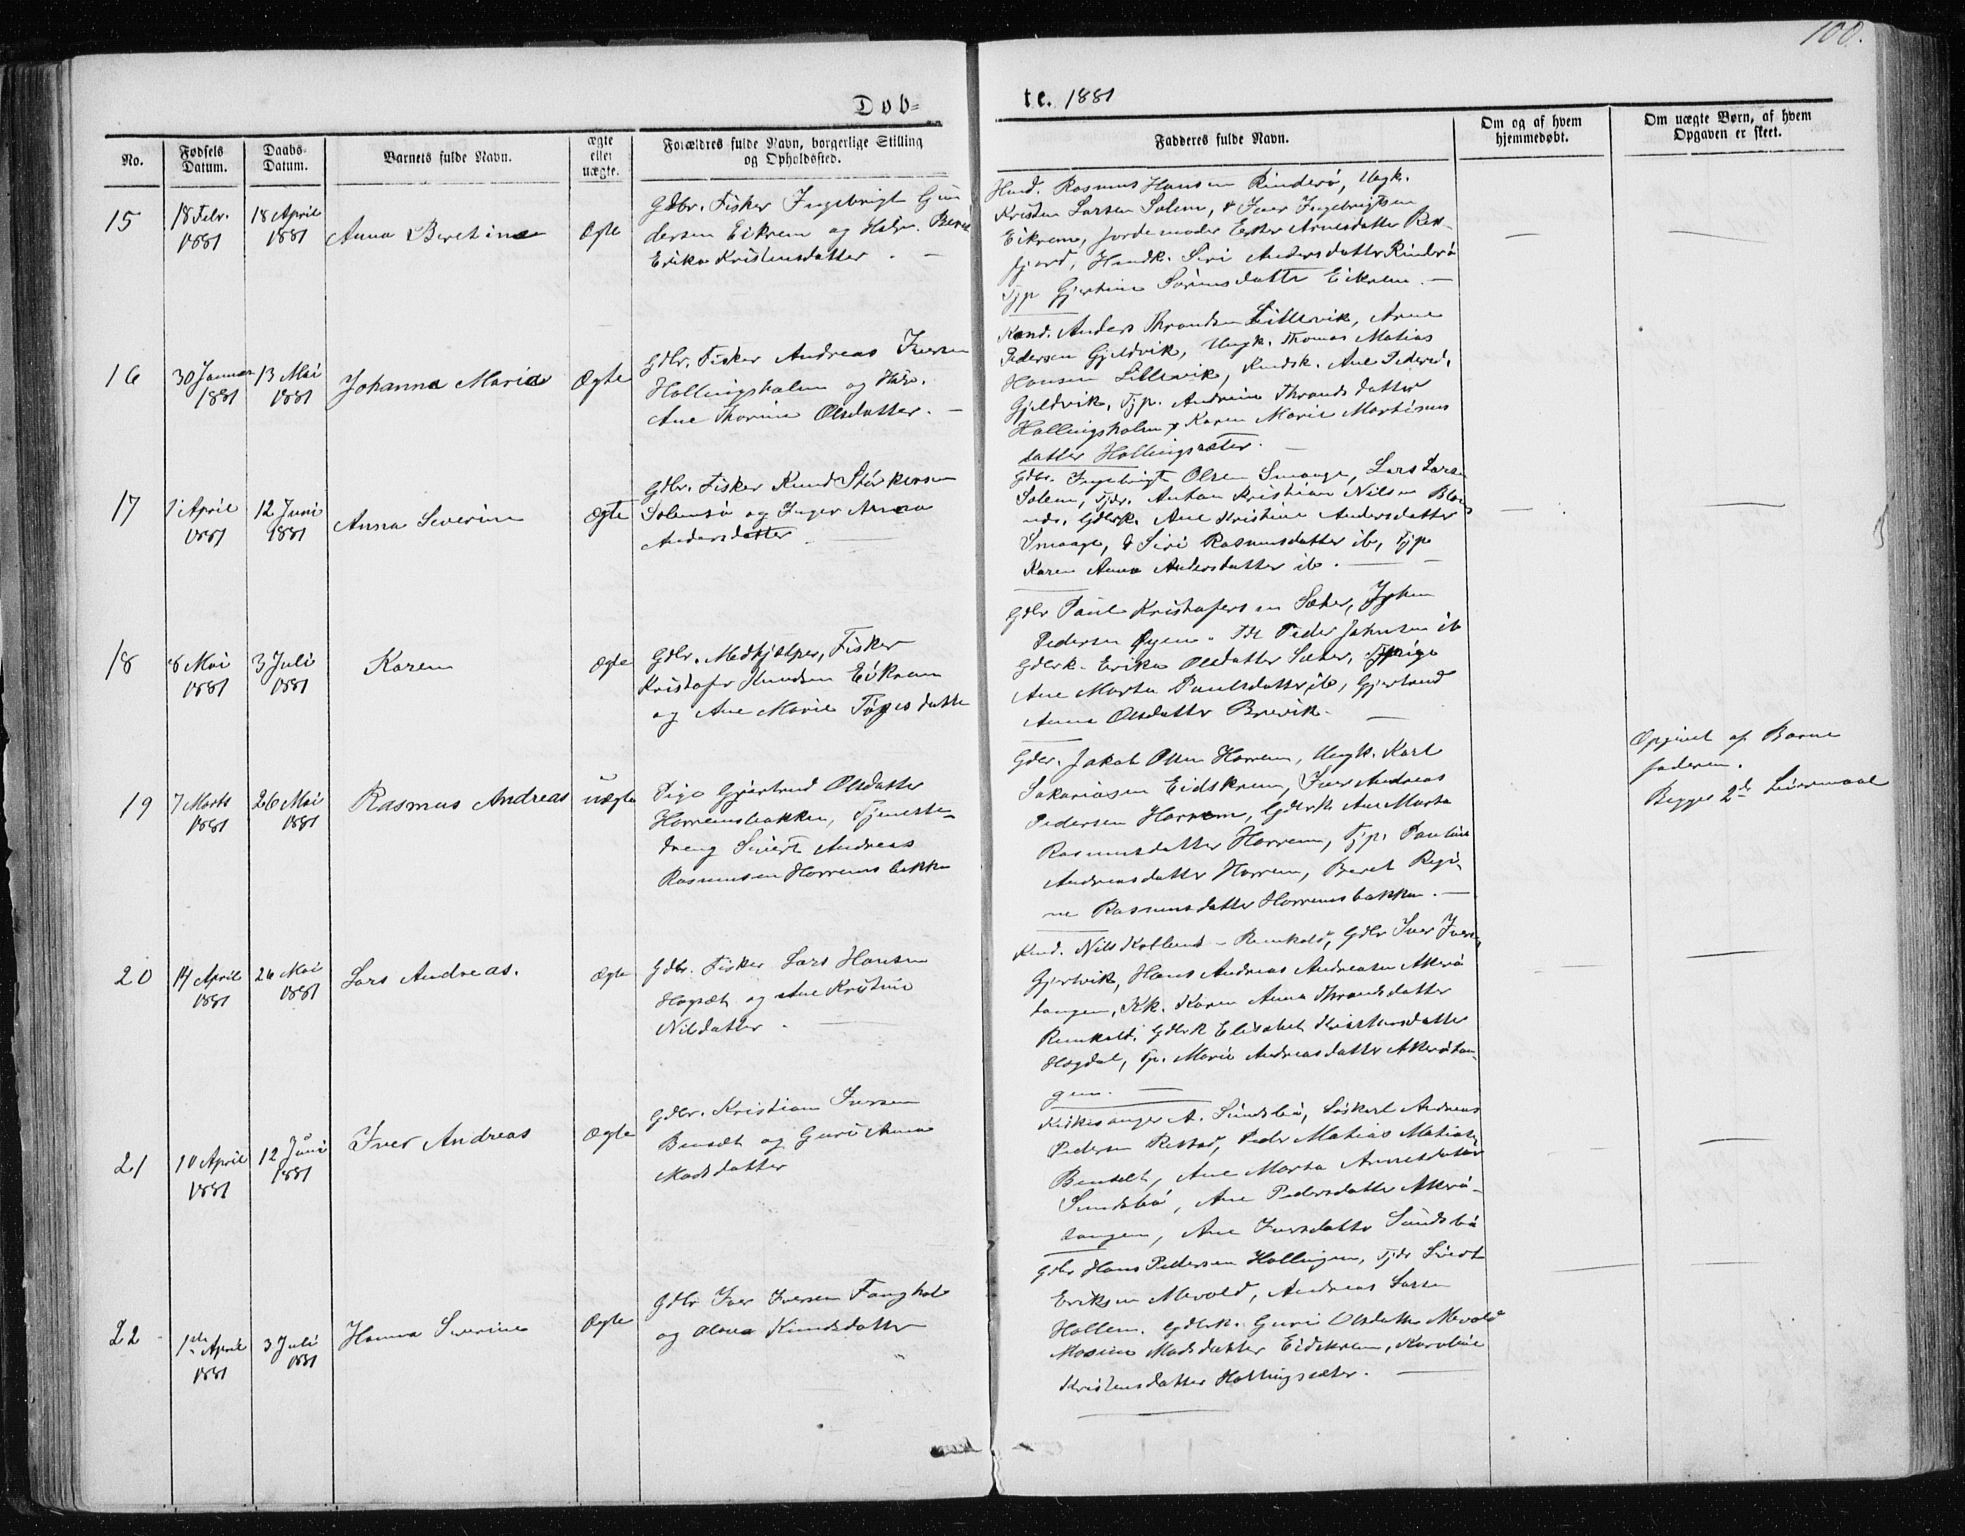 100.
Døb-
te. 1881
No.
Fødsels
Datum.
Daabs-
Datum.
Barnets fulde Navn.
ægte
eller
uægte.
Forældres fulde Navn, borgerlige Stilling
og Opholdssted.
Fadderes fulde Navn.
Om og af hvem
hjemmedøbt.
Om uægte Børn, af hvem
Opgaven er skeet.
15
18 Febr.
1881
18 April
1881
Anna Beretine
Ægte
Gdbr. Fisker Ingebrigt Gun
dersen Eikrem og Hstr. Beret
Erika Kristensdatter. —
Rasmus Hansen Rinderö, Ungk.
Kristen Larsen Solem, & Iver Ingebrigtsen
Eikrem, Jordemoder Ester Arnesdatter
fjord, Siri Andersdatter Rinderö
Tjp Gjertine Sörensdatter Eikrem. —
16
30 Januar
1881
13 Mai
1881
Johanna Maria
Ægte
Gdbr. Fisker Andreas Iversen
Hollingsholm og Hstr.
Ane Thorine Olsdatter. —
Anders Throndsen Lillevik, Arne
Pedersen Gjeldvik, Ungk. Thomas Matias
Hansen Lillevik, Ane Pedersd.
Gjeldvik, Tjp. Andrine Throndsdatter
Hollingsholm & Karen Marie Martinus
datter Hollingsæter.
17
1 April
1881
12 Juni
1881
Anna Severine
Ægte
Gdbr. Fisker Knud Störkersen
Solemsö og Inger Anna
Andersdatter
Gdbr. Ingebrigt Olsen Smaage, Lars Larsen
Solem, Tjdr. Anton Kristian Nilsen
Gdbrk. Ane Kristine Andersdatter
Smaage, & Siri Rasmusdatter ib, Tjp
Karen Anna Andersdatter ib. —
18
8 Mai
1881
3 Juli
1881
Karen
Ægte
Gdbr. Medhjælper, Fisker
Kristofer Knudsen Eikrem
og Ane Marie
Gdbr Paul Kristofersen Sæter,
Pedersen Peder Johnsen ib
Gdbrk. Erika Olsdatter Sæter,
Ane Marta Paulsdatter ib, Gjertrud
Anna Olsdatter Brevik.
19
7 Marts
1881
26 Mai
1881
Rasmus Andreas
uægte
Pige Gjertrud Olsdatter
Harremsbakken, Tjeneste-
dreng Sivert Andreas
Rasmussen Harremsbakken
Gdbr. Jakob Olsen Harrem, Ungk. Karl
Sakariasen Eidskrem, Iver Andreas
Pedersen Harrem, Gdbrk Ane Marta
Rasmusdatter Harrem, Tjp. Pauline
Andreasdatter Harrem, Beret Regi-
ne Rasmusdatter Harremsbakken. —
Opgivet af Barne
faderen.
Begges 2det Leiermaal
20
14 April
1881
26 Mai
1881
Lars Andreas.
Ægte
Gdbr. Fisker Lars Hansen
Hogsæt og Ane Kristine
Nilsdatter.
Gdbr Iver Iversen
Gjertvik, Hans Andreas Andreasen Akerö
tangen, Karen Anna Throndsdatter
Gdbrk Elisabet Kristensdatter
Hogdal, Tjp. Marie Andreasdatter Akerötan-
gen.
21
10 April
1881
12 Juni
1881
Iver Andreas
Ægte
Gdbr. Kristian Iversen
Bendset og Guri Anna
Madsdatter
Kirkesanger A. Sundsbö, Andreas
Pedersen Restad, Peder Matias Matiasen
Bendset, Ane Marta Arnesdatter
Sundsbö, Ane Pedersdatter Akerö-
tangen, Ane Iversdatter Sundsbö
22
1ste April
1881
3 Juli
1881
Hanna Severine
Ægte
Gdbr Iver Iversen Tanghol
og Olava Knudsdatter
Gdbr Hans Pedersen Hollingen, Tjdr Sivert
Eriksen Mevold, Andreas Larsen
Hollem. Gdbrk. Guri Olsdatter Mevold
Madsdatter Eidskrem, Karoline
Kristensdatter Hollingsæter. —